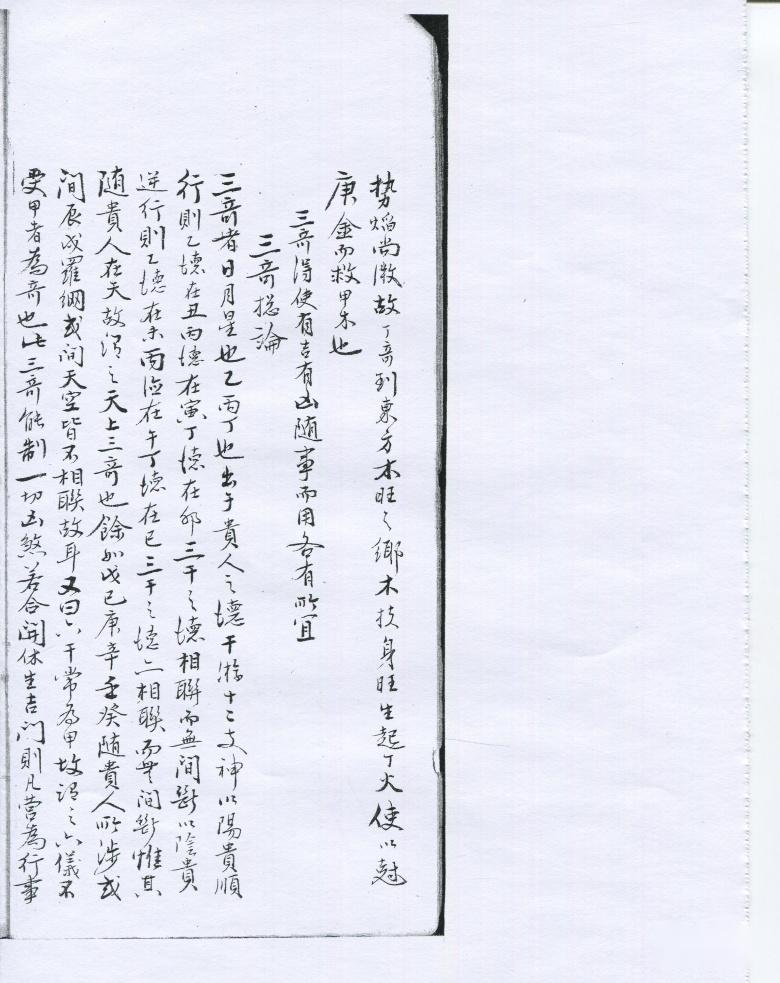 势焰尚微故丁奇到東方木旺之鄉木扶身旺生起丁火使以尅
庚金而救甲木也
三奇得使有吉有凶随事而用各有所宜
三奇総論
三奇者日月星也乙丙丁也出于貴人之德干游十二支神以陽貴順
行則乙德在丑丙德在寅丁德在卯三干之德相聯而無間断以陰貴
逆行則乙德在未丙德在午丁德在巳三干之德亦相聯而無間断惟其
随貴人在天故谓之天上三奇也餘如戊己庚辛壬癸随貴人所涉或
間辰戌羅網或间天空皆不相聯故耳又曰六干常為甲故谓之六儀不
受甲者為奇也此三奇能制一切凶煞若合開休生吉门則凡营為行事